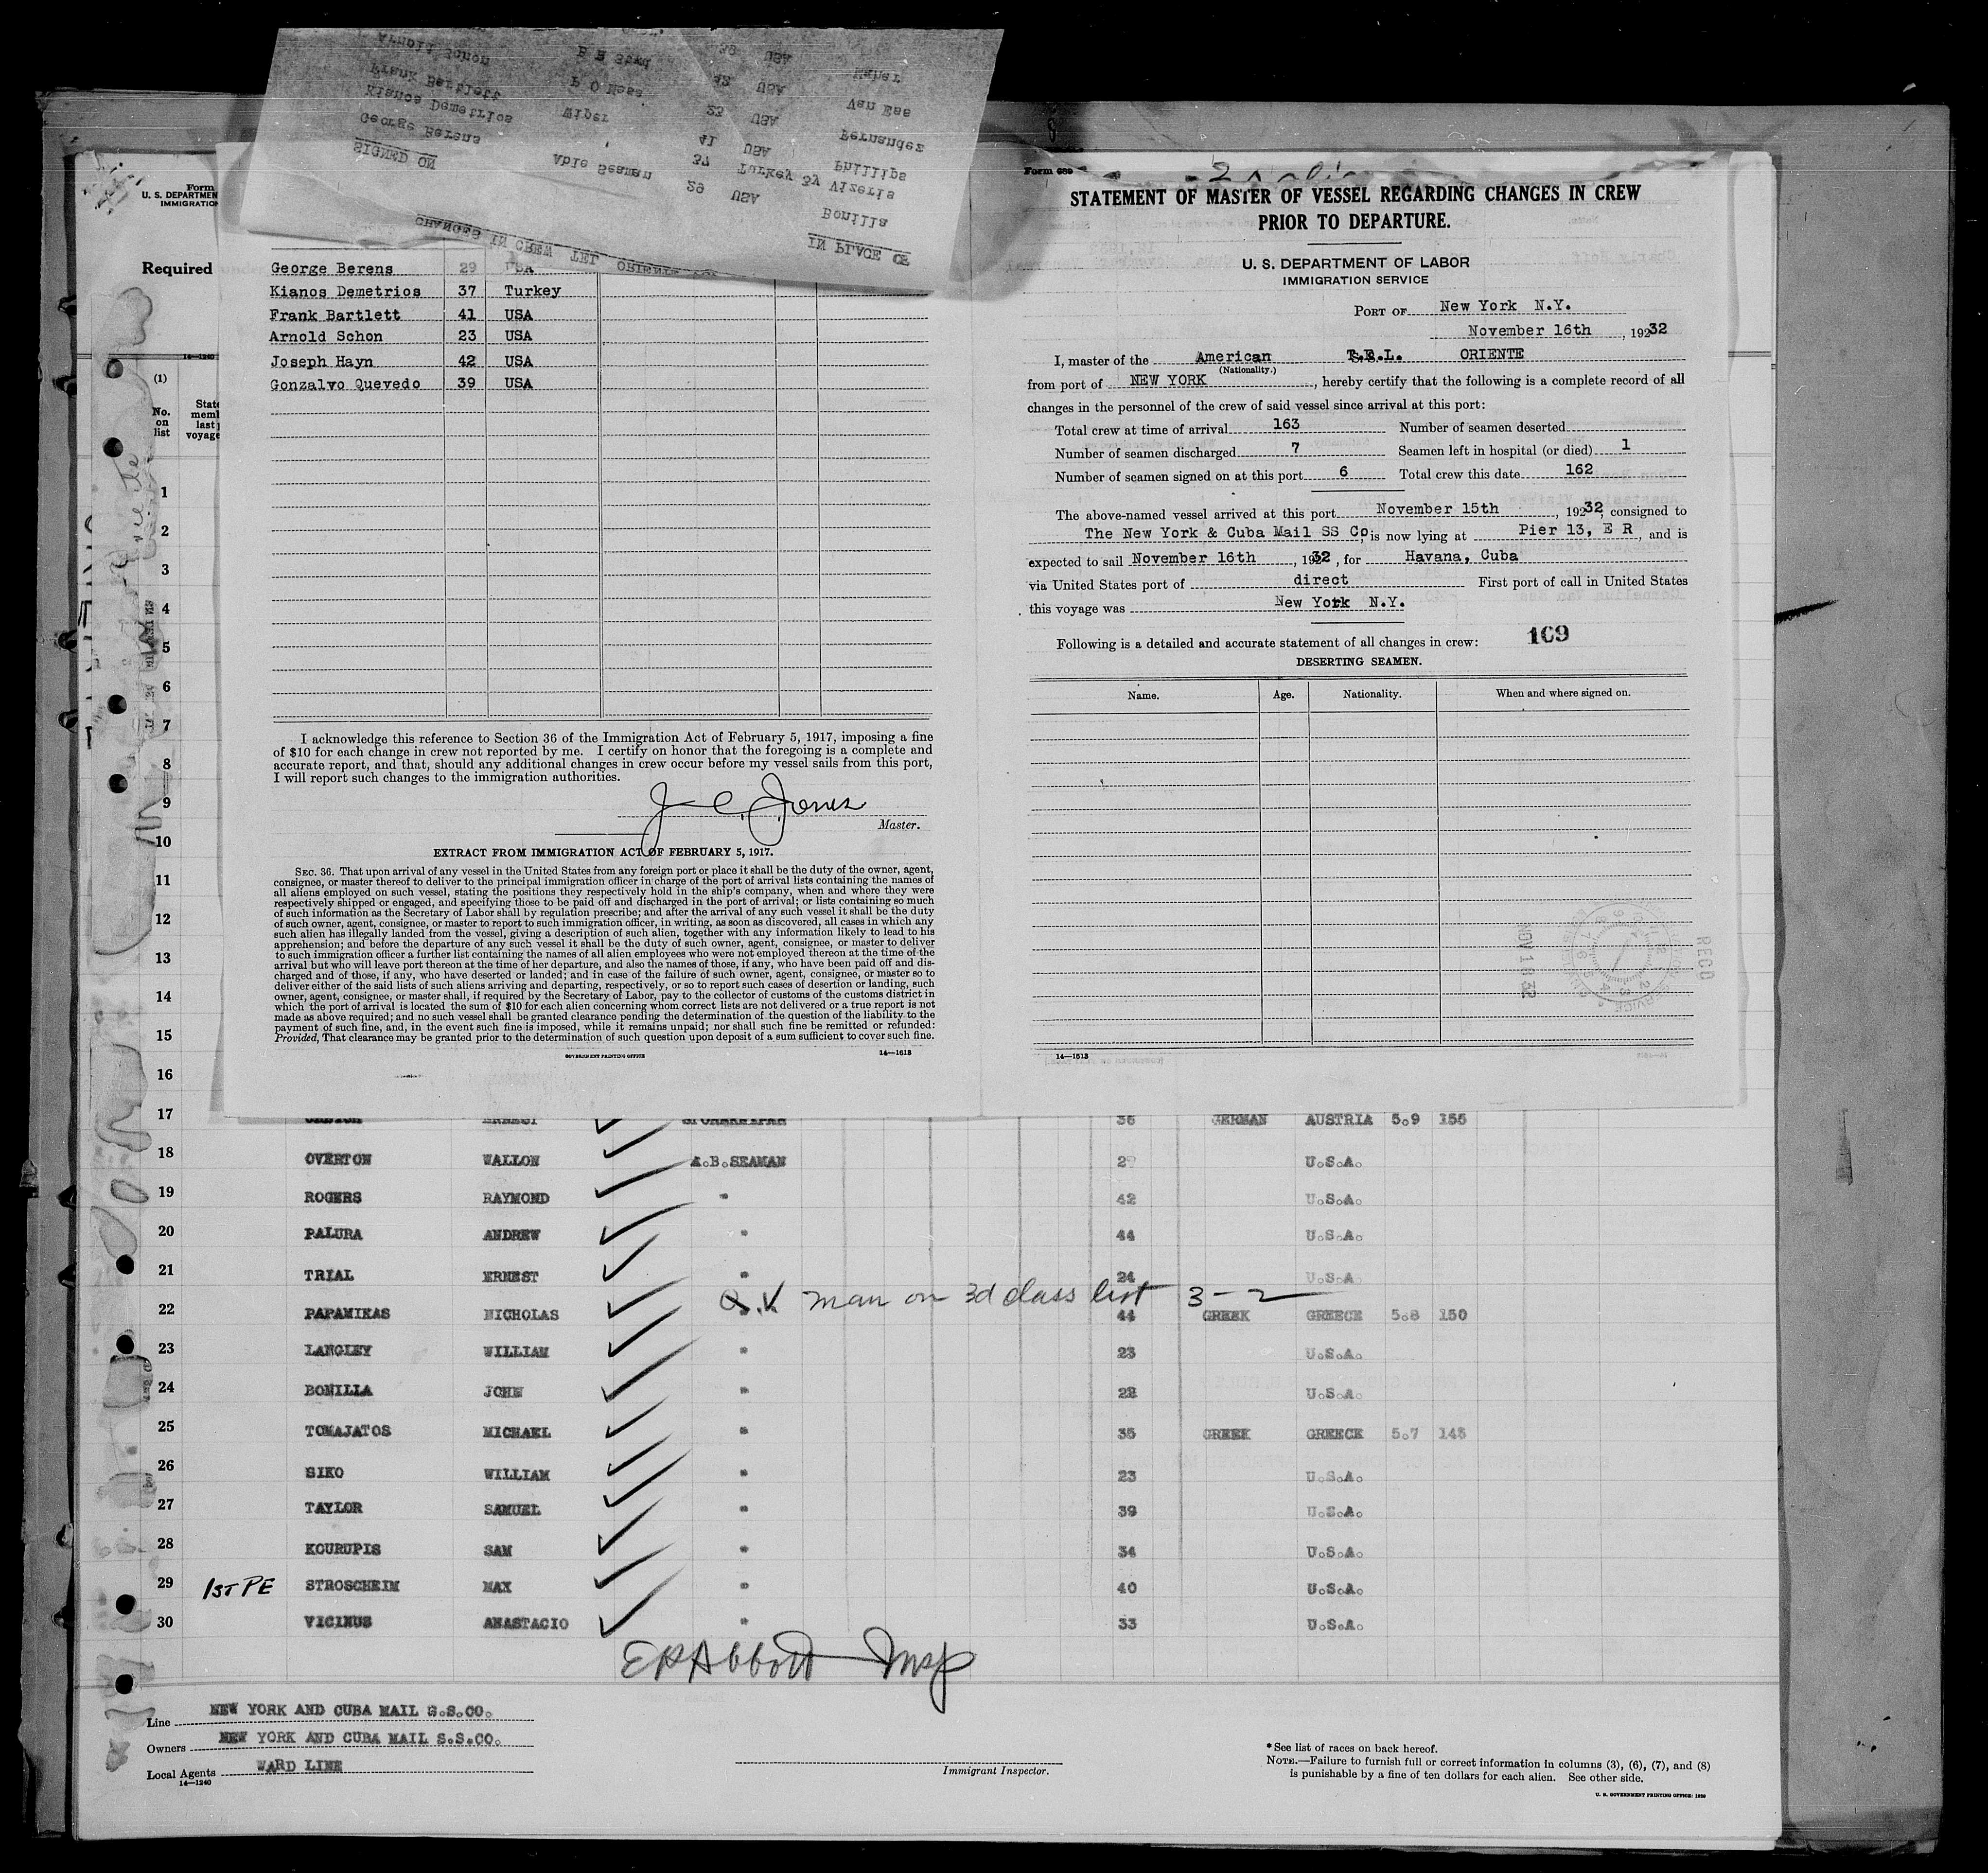 CHANGES IN CREW TEL ORIENTE
SIGNED ON IN PLACE OF
George Berens Able Seaman 29 USA Bonilla
Kianos Demetrios 37 Turkey by Vizeris
Frank Bartlett Wiper 41 USA Phillips
Arnold Schon P O Mess 23 USA Fernandez
42 USA Van Ess
B R Stwd 39 USA Maher
Form
U. S. DEPARTMEN
IMMIGRATION
Required
14—1240
(1)
No.
on
list
State
memb
last p
voyage
1
2
3
4
5
6
7
8
9
10
11
12
13
14
15
16
George Berens 29 USA
Kianos Demetrios 37 Turkey
Frank Bartlett 41 USA
Arnold Schon 23 USA
Joseph Hayn 42 USA
Gonzalvo Quevedo 39 USA
I acknowledge this reference to Section 36 of the Immigration Act of February 5, 1917, imposing a fine
of $10 for each change in crew not reported by me. I certify on honor that the foregoing is a complete and
accurate report, and that, should any additional changes in crew occur before my vessel sails from this port,
I will report such changes to the immigration authorities.
J C. Jones
Master.
EXTRACT FROM IMMIGRATION ACT OF FEBRUARY 5, 1917.
SEC. 36. That upon arrival of any vessel in the United States from any foreign port or place it shall be the duty of the owner, agent,
consignee, or master thereof to deliver to the principal immigration officer in charge of the port of arrival lists containing the names of
all aliens employed on such vessel, stating the positions they respectively hold in the ship's company, when and where they were
respectively shipped or engaged, and specifying those to be paid off and discharged in the port of arrival; or lists containing so much
of such information as the Secretary of Labor shall by regulation prescribe; and after the arrival of any such vessel it shall be the duty
of such owner, agent, consignee, or master to report to such immigration officer, in writing, as soon as discovered, all cases in which any
such alien has illegally landed from the vessel, giving a description of such alien, together with any information likely to lead to his
apprehension; and before the departure of any such vessel it shall be the duty of such owner, agent, consignee, or master to deliver
to such immigration officer a further list containing the names of all alien employees who were not employed thereon at the time of the
arrival but who will leave port thereon at the time of her departure, and also the names of those, if any, who have been paid off and dis-
charged and of those, if any, who have deserted or landed; and in case of the failure of such owner, agent, consignee, or master so to
deliver either of the said lists of such aliens arriving and departing, respectively, or so to report such cases of desertion or landing, such
owner, agent, consignee, or master shall, if required by the Secretary of Labor, pay to the collector of customs of the customs district in
which the port of arrival is located the sum of $10 for each alien concerning whom correct lists are not delivered or a true report is not
made as above required; and no such vessel shall be granted clearance pending the determination of the question of the liability to the
payment of such fine, and, in the event such fine is imposed, while it remains unpaid; nor shall such fine be remitted or refunded:
Provided, That clearance may be granted prior to the determination of such question upon deposit of a sum sufficient to cover such fine.
GOVERNMENT PRINTING OFFICE 14—1513
Form 689
STATEMENT OF MASTER OF VESSEL REGARDING CHANGES IN CREW
PRIOR TO DEPARTURE.
U. S. DEPARTMENT OF LABOR
IMMIGRATION SERVICE
PORT OF New York N.Y.
November 16th, 1932
I, master of the American T.E.L. ORIENTE
(Nationality.)
from port of NEW YORK, hereby certify that the following is a complete record of all
changes in the personnel of the crew of said vessel since arrival at this port:
Total crew at time of arrival 163 Number of seamen deserted
Number of seamen discharged 7 Seamen left in hospital (or died) 1
Number of seamen signed on at this port 6 Total crew this date 162
The above-named vessel arrived at this port November 15th, 1932, consigned to
The New York & Cuba Mail SS Co, is now lying at Pier 13, E R, and is
expected to sail November 16th, 1932, for Havana, Cuba
via United States port of direct First port of call in United States
this voyage was New York N.Y.
Following is a detailed and accurate statement of all changes in crew: 109
DESERTING SEAMEN.
Name. Age. Nationality. When and where signed on.
REC'D
NOV 16 32
14—1513
17 ERNEST STOREKEEPER 36 GERMAN AUSTRIA 5.9 155
18 OVERTON WALLON A.B.SEAMAN U.S.A.
19 ROGERS RAYMOND " 42 U.S.A.
20 PALURA ANDREW " 44 U.S.A.
21 TRIAL ERNEST " 24 U.S.A.
O.K man on 3d class list 3-2
22 PAPAMIKAS NICHOLAS " 44 GREEK GREECE 5.8 150
23 LANGLEY WILLIAM " 23 U.S.A.
24 BONILLA JOHN " 28 U.S.A.
25 TOMAJATOS MICHAEL " 35 GREEK GREECE 5.7 145
26 SIKO WILLIAM " 23 U.S.A.
27 TAYLOR SAMUEL " 39 U.S.A.
28 KOURUPIS SAM " 34 U.S.A.
29 1ST PE STROSCHEIM MAX " 40 U.S.A.
30 VICINUS ANASTACIO " 33 U.S.A.
E R Abbott Insp
Line NEW YORK AND CUBA MAIL S.S.CO.
Owners NEW YORK AND CUBA MAIL S.S.CO.
Local Agents WARD LINE
14—1240
Immigrant Inspector.
* See list of races on back hereof.
NOTE.—Failure to furnish full or correct information in columns (3), (6), (7), and (8)
is punishable by a fine of ten dollars for each alien. See other side.
U. S. GOVERNMENT PRINTING OFFICE: 1930